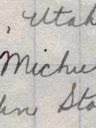 , Utah
Michie
hn Sta